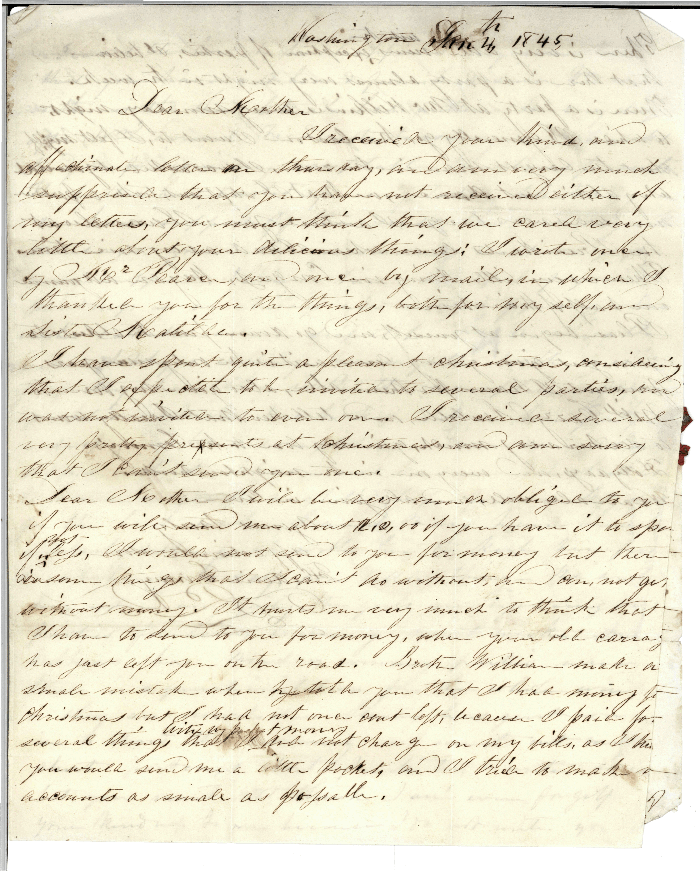 Washington Jan 4th 1845
Dear Mother
I received your kind, and
affectionate letter on thursday, and am very much
suppprised that you have not received either of
my letters, you must think that we cared very
little about your delicious things; I wrote one
by Mr and one by mail, in which I
thanked you for the things, both for my self, and
Sister Matilda.
I have spent quite a pleasant christmas, considering
that I expected to be invited to several parties, and
was not invited to even one. I received several
very pretty presents at christmas, and am sorry
that I can't send you one.
Dear Mother I will be very much obliged to you
if you will send me about or if you have it to spare
if not less, I would not send to you for money but there
is some things that I can't do without, and can not get
without money. It hurts me very much to think that
I have to send to you for money, when your old carriage
has just left you on the road. Brother William made a
small mistake when he told you that I had money for
christmas but I had not one cent left, because I paid for
several things with my pocket money that I did not charge on my bills, as I knew
you would send me a little pocket, and I tried to make my
accounts as small as possable.